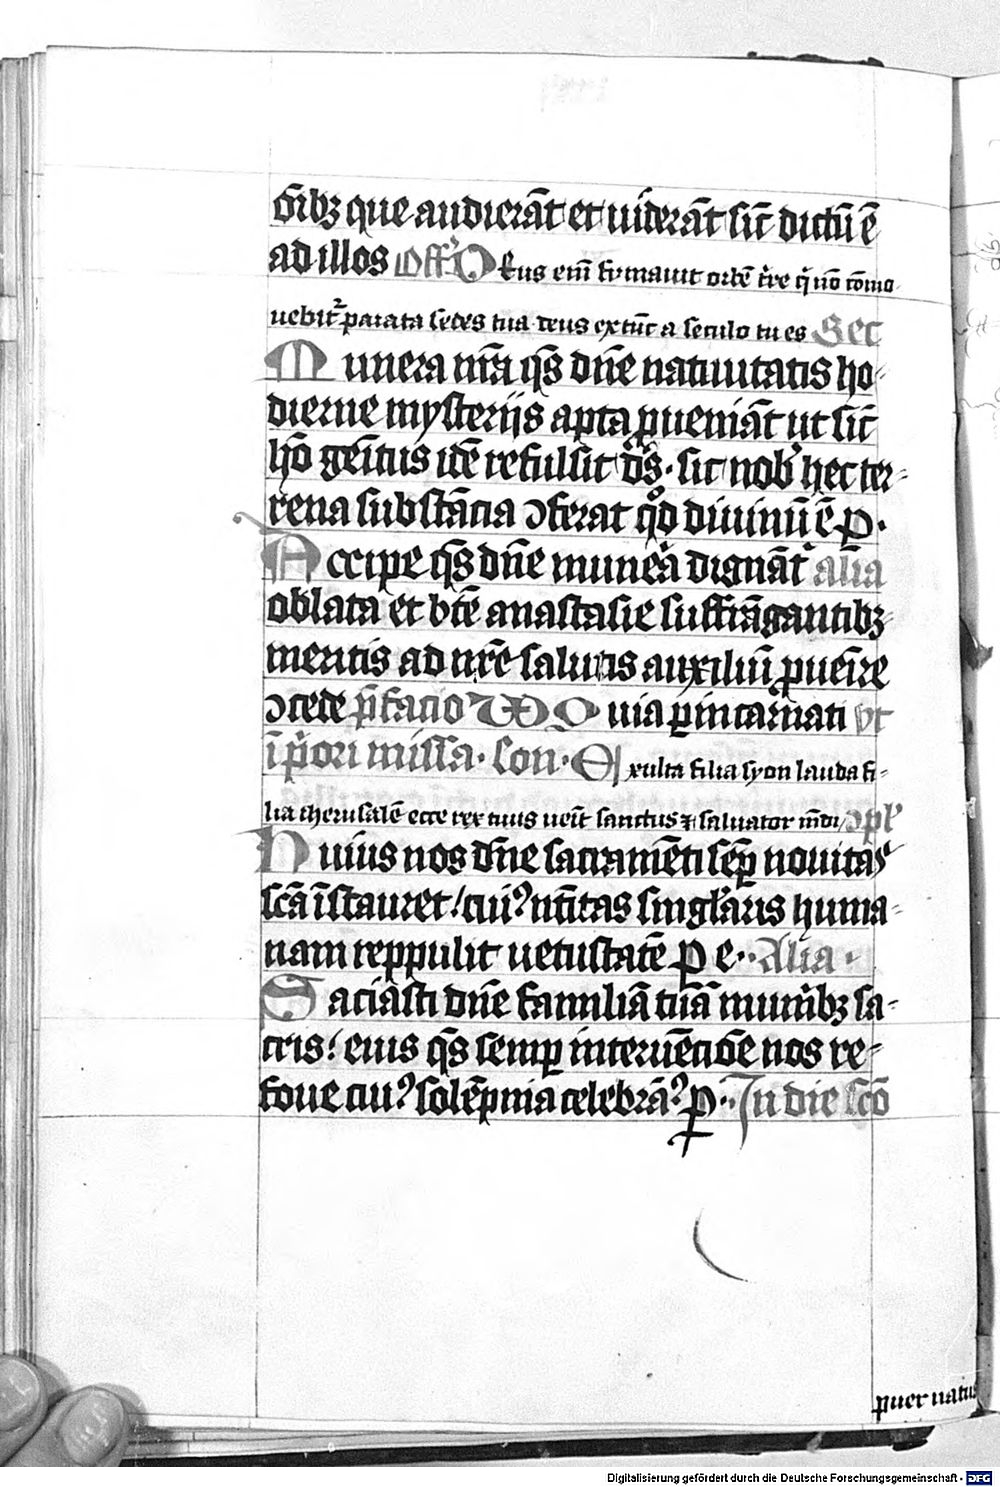 o͞ibꝫ que audierāt et uiderāt sic̄ dictū ē
ad illos Off͛ Deus em̄ firmauit orbē t͛re q͛ nō cōmo-
uebit᷑ parata sedes tua deus ex tūc a seculo tu es Sec͛
Munera nr̄a qs̄ dn̄e natiuitatis ho-
dierne mysterijs apta ꝓueniāt ut sic̄
hō genitus idē refulsit ds̄. sic nob̄ hec ter-
rena substācia ↄferat qḋ diuinū ē ꝑ.
Accipe qs̄ dn̄e munera dignāt᷑ alia
oblata et btē anastasie suffragantibꝫ
meritis ad nr̄e salutis auxiliū ꝓueīre
ↄcede p̄facio VD Quia ꝑ incarnati vt
ī p͛ori missa. Con. Exulta filia syon lauda fi-
lia iherusalē ecce rex tuus uēit sanctus ⁊ saluator mūdi / ↄpl͛
Huius nos dn̄e sacramēti semꝑ nouitas
scā īstauret / cui᷒ natitas singl͛aris huma-
nam reppulit uetustatē ꝑ e. Alia.
Saciasti dn̄e familiā tuā munibꝫ sa-
cris / eius qs̄ semꝑ interuēcōe nos re-
foue cui᷒ solēpnia celebram᷒ ꝑ. In die sco
puer natus
Digitalisierung gefördert durch die Deutsche Forschungsgemeinschaft - DFG